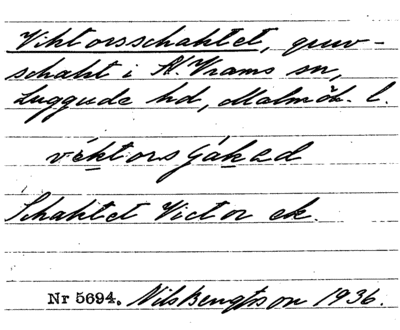 Viktorsschaktet, gruv-
schakt i N. Vrams sn,
Luggude hd, Malmöh. l.
Schaktet Victor ek.
Nr 5694. Nils Bengtsson 1936.